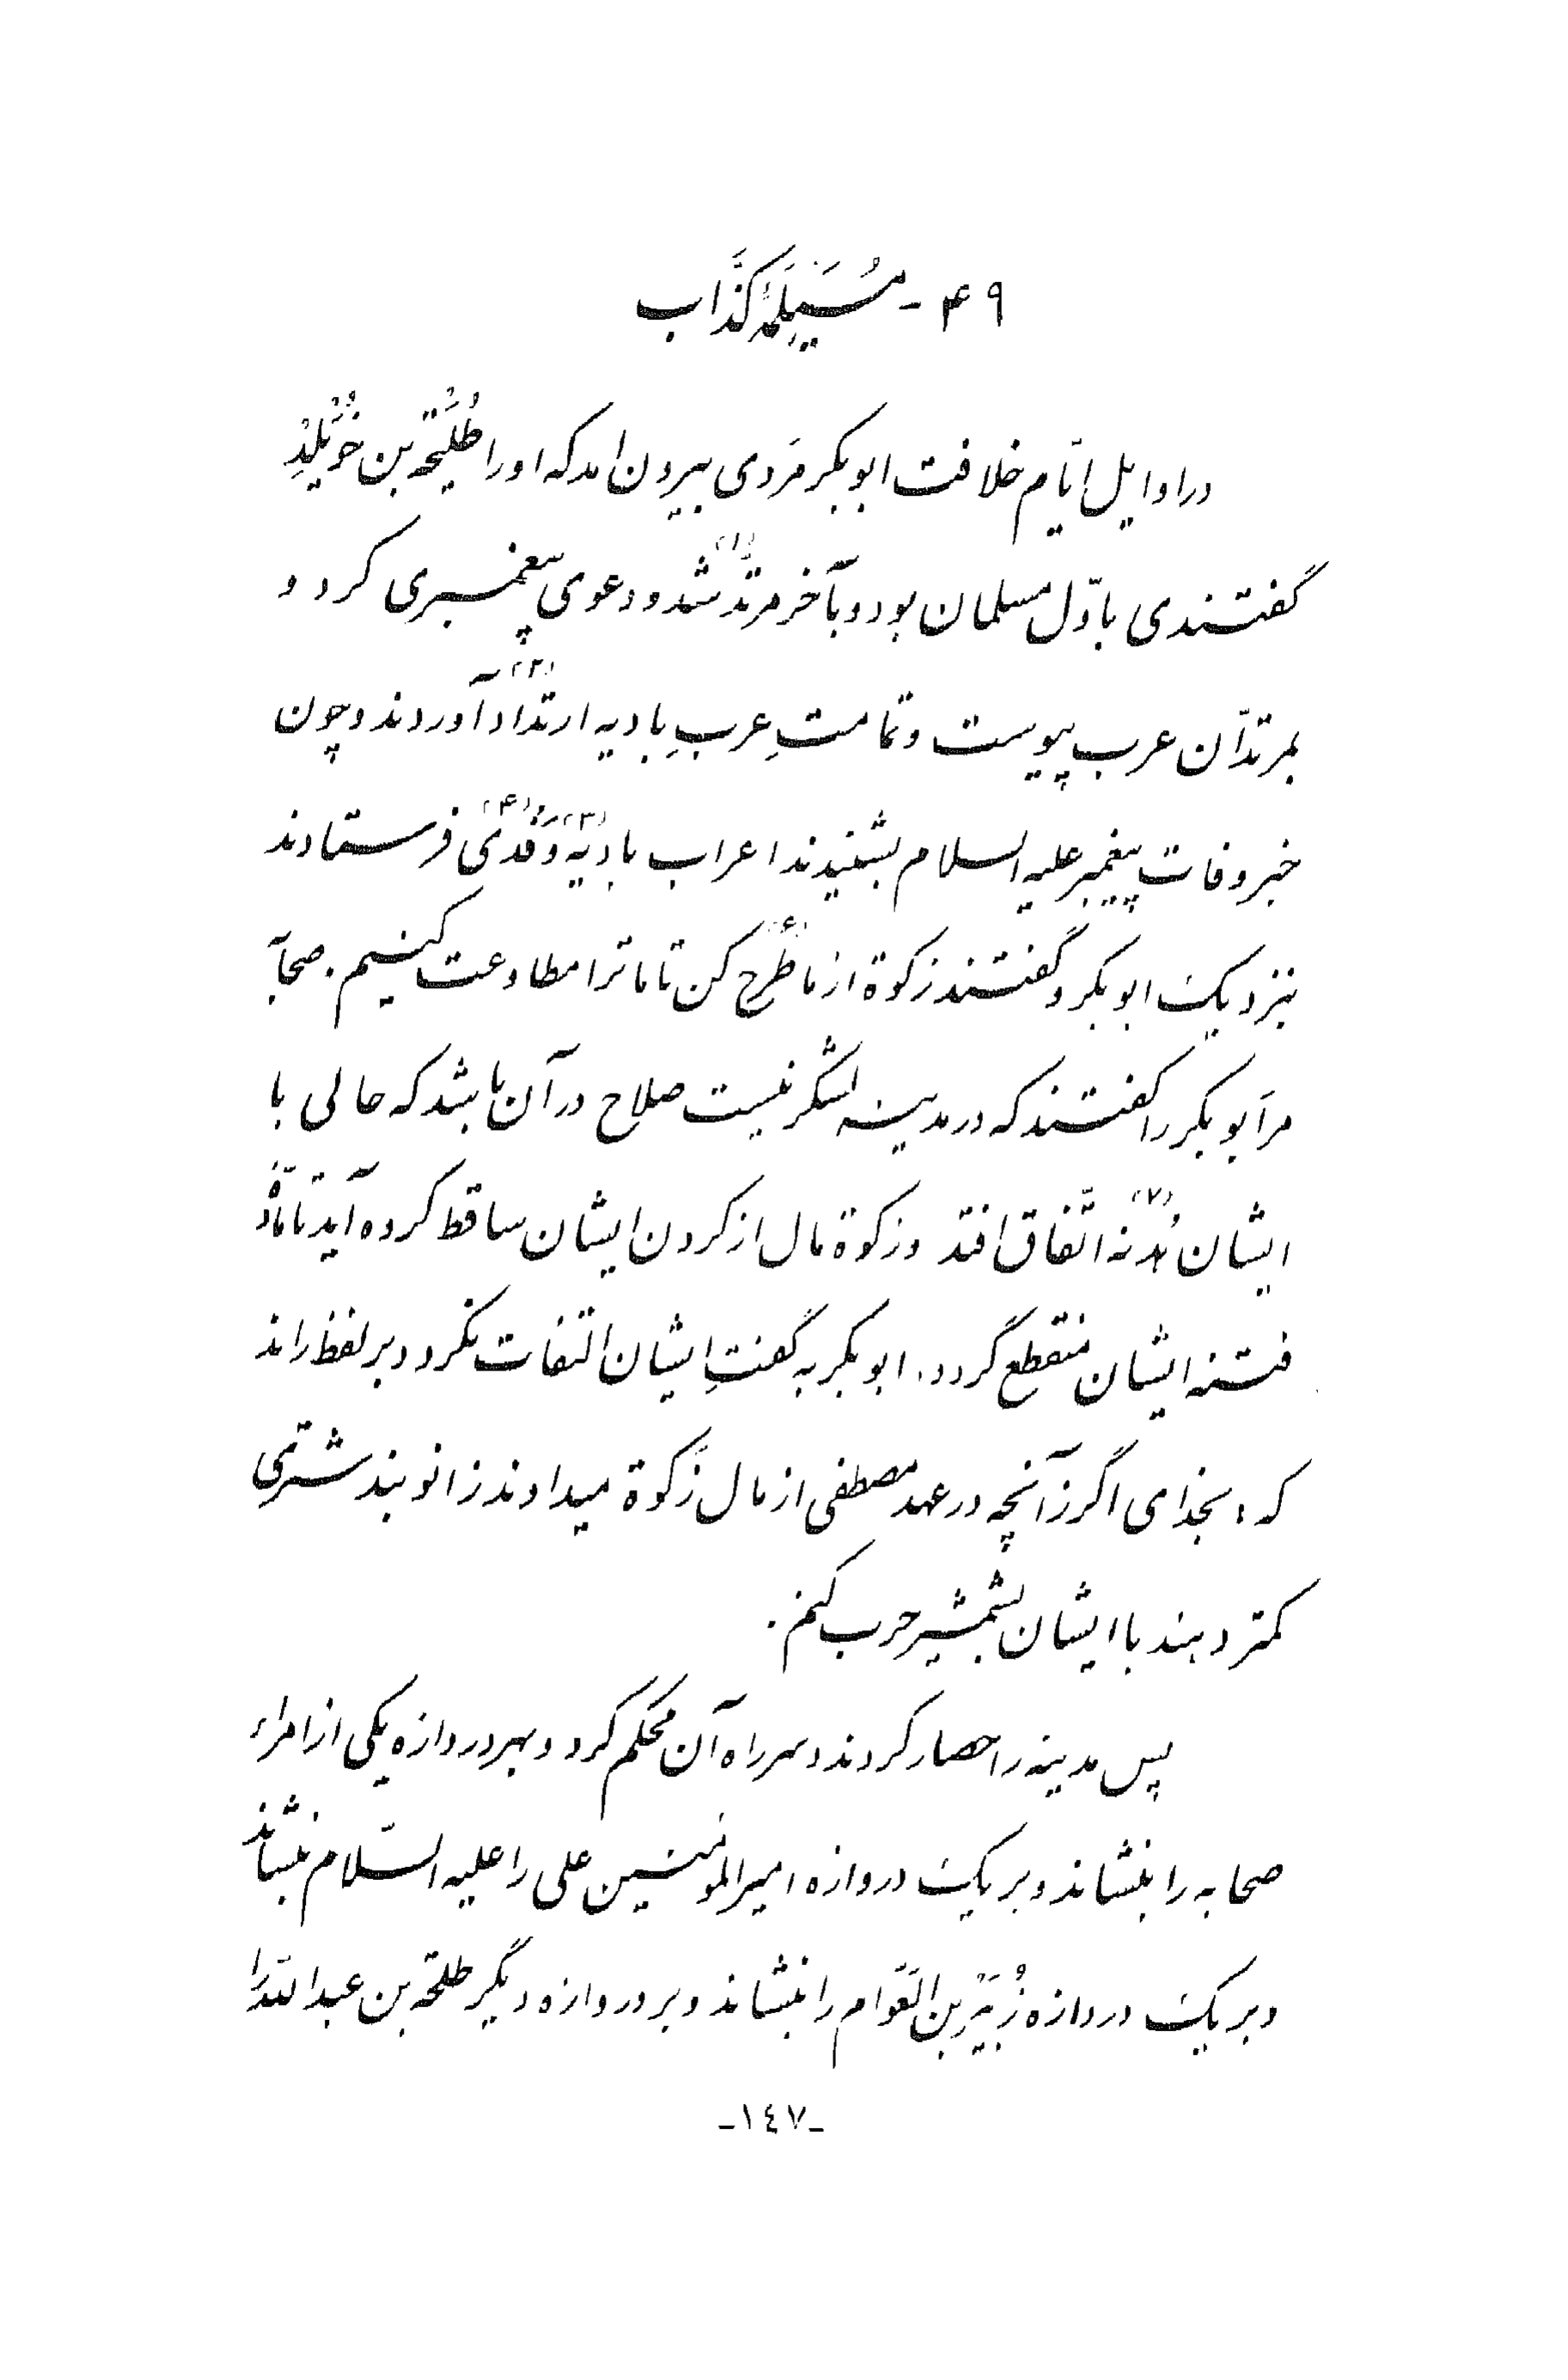 ۴۹ - مُسَیلَمَۀ کَذَّاب
در اوایل ایّام خلافت ابوبکر مَردی بیرون امد که او را طُلَیْحَة بن خُوَیْلِدْ
گفتندی باوّل مسلمان بود و بآخر مرتدّ(۱) شد و دعوی پیغمبری کرد و
بمرتدّان عرب پیوست و تمامتِ عربِ بادیه ارتداد(۲) آوردند و چون
خبر وفات پیغمبر علیه السلام بشنیدند اعراب بادیه(۳) وَفدی(۴) فرستادند
بنزدیک ابوبکر و گفتند زکوة از ما طَرح کن تا ما ترا مطاوعت کنیم. صحابه
مر ابوبکر را گفتند که در مدینه لشکر نیست صلاح در آن باشد که حالی با
ایشان هُدنه(۷) اتّفاق افتد و زکوة مال از کردن ایشان ساقط کرده آید تا مادّۀ
فتنه ایشان منقطع گردد. ابوبکر به گفتِ ایشان التفات نکرد و بر لفظ راند
که: بخدای اگر زآنچه در عهد مصطفی از مال زکوة میدادند زانو بند شتری
کمتر دهند با ایشان بشمشیر حرب کنم.
پس مدینه را حصار کردند و سر راه آن محکم کرد و بهر دروازه یکی از امراء
صحابه را بنشاند و بر یک دروازه امیرالمؤمنین علی را علیه السّلام بنشاند
و بر یک دروازه زُبَیْر بن العَوّام را بنشاند و بر دروازه دیگر طلحة بن عبدالله را
-۱٤۷-